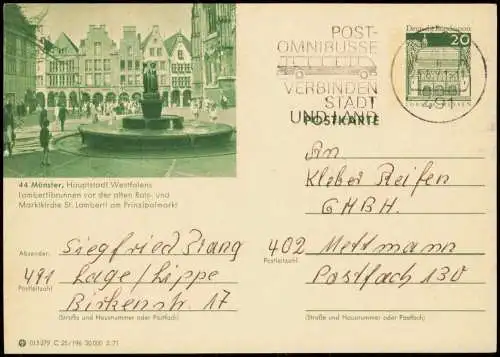 44 Münster, Hauptstadt Westfalens
Lambertibrunnen vor der alten Rats- und
Marktkirche St. Lamberti am Prinzipalmarkt
POST-
OMNIBUSSE
VERBINDEN
STADT
UND LAND
Deutsche Bundespost
20
POSTKARTE
An
Kleber Reifen
GMBH.
402 Mettmann
Postleitzahl
Postfach 130
(Straße und Hausnummer oder Postfach)
Absender:
Siegfried Prang
491 Lage/Lippe
Postleitzahl
Birkenstr. 17
(Straße und Hausnummer oder Postfach)
015 279 C 25/196 30.000 2.71